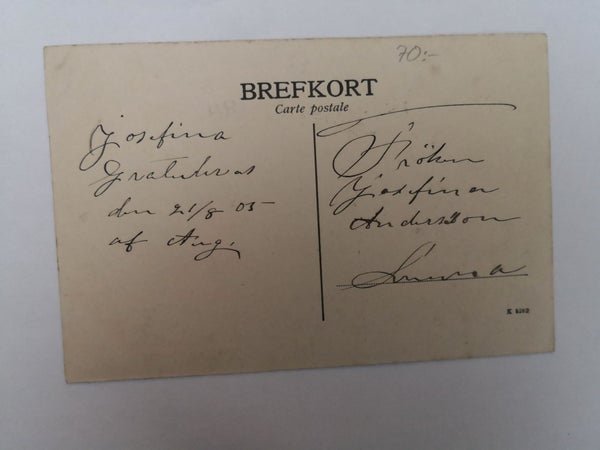 70:-
BREFKORT
Carte postale
Josefina
Gratuleras
den 21/8 05
af Aug.
Fröken
Josefina
Andersson